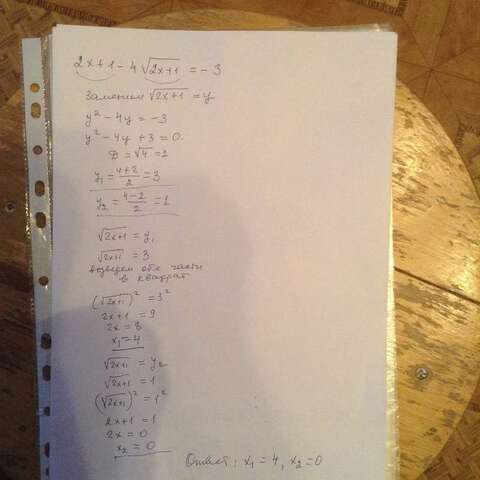 2x+1 - 4√(2x+1) = -3
Заменим √(2x+1) = y
y² - 4y = -3
y² - 4y + 3 = 0.
D = √4 = 2
y₁ = (4+2)/2 = 3
y₂ = (4-2)/2 = 1
√(2x+1) = y₁
√(2x+1) = 3
возведем обе части
в квадрат
(√(2x+1))² = 3²
2x+1 = 9
2x = 8
x₁ = 4
√(2x+1) = y₂
√(2x+1) = 1
(√(2x+1))² = 1²
2x+1 = 1
2x = 0
x₂ = 0
Ответ: x₁ = 4, x₂ = 0